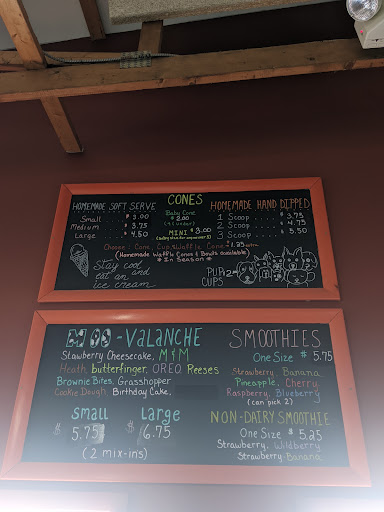 CONES
HOMEMADE SOFT SERVE
Small ..... $ 3.00
Medium ..... $ 3.75
Large ..... $ 4.50
Baby Cone
$ 2.00
(4 & under)
MINI $ 3.00
HOMEMADE HAND DIPPED
1 Scoop .... $ 3.75
2 Scoop .... $ 4.75
3 Scoop .... $ 5.50
Choose: Cone, Cup, Waffle Cone + 1.25
(Homemade Waffle Cones & Bowls available)
* In Season *
Stay cool
eat an and
ice cream
PUP
CUPS
MOO-VALANCHE
Stawberry Cheesecake, M&M
Heath, butterfinger, OREO, Reeses
Brownie Bites, Grasshopper
Cookie Dough, Birthday Cake,
Small
$ 5.75
Large
$ 6.75
(2 mix-ins)
SMOOTHIES
One Size $ 5.75
Strawberry, Banana
Pineapple, Cherry,
Raspberry, Blueberry
(can pick 2)
NON-DAIRY SMOOTHIE
One Size $ 5.25
Strawberry, Wildberry
Strawberry-Banana